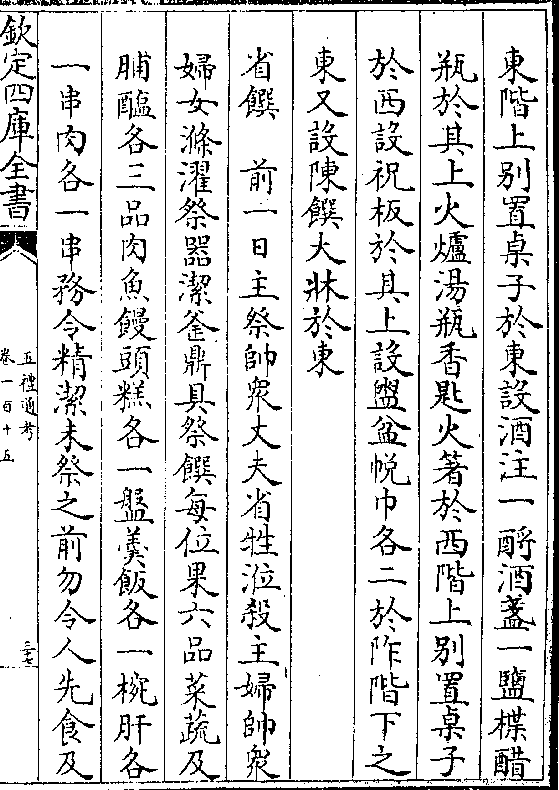 東階上别置桌子於東設酒注一酹酒盞一盤楪醋
瓶於其上火爐湯瓶香匙火箸於西階上别置桌子
於西設祝板於其上設盥盆帨巾各二於阼階下之
東又設陳饌大牀於東
省饌　前一日主祭帥衆丈夫省牲涖殺主婦帥衆
婦女滌濯祭器潔釜鼎具祭饌每位果六品菜蔬及
脯醢各三品肉魚饅頭糕各一盤羹飯各一椀肝各
一串肉各一串務令精潔未祭之前勿令人先食及
欽定四庫全書
五禮通考
卷一百十五